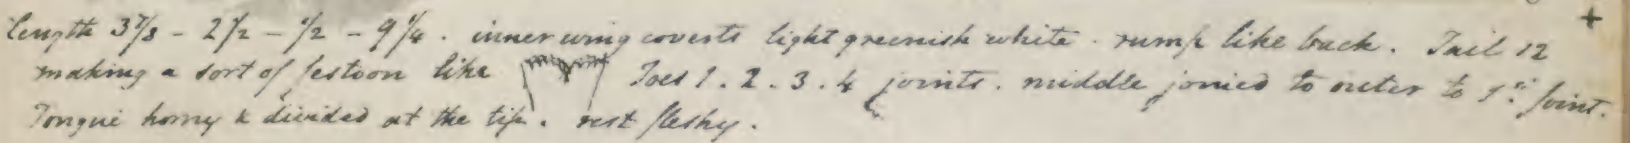 length 3 7/8 - 2 1/2 - 1/2 - 9 1/4 . inner wing coverts light greenish white . rump like back . Tail 12 +
making a sort of festoon like Toes 1 . 2 . 3 . 4 joints . middle joined to outer to 1st joint .
Tongue horny & divided at the tip . rest fleshy .